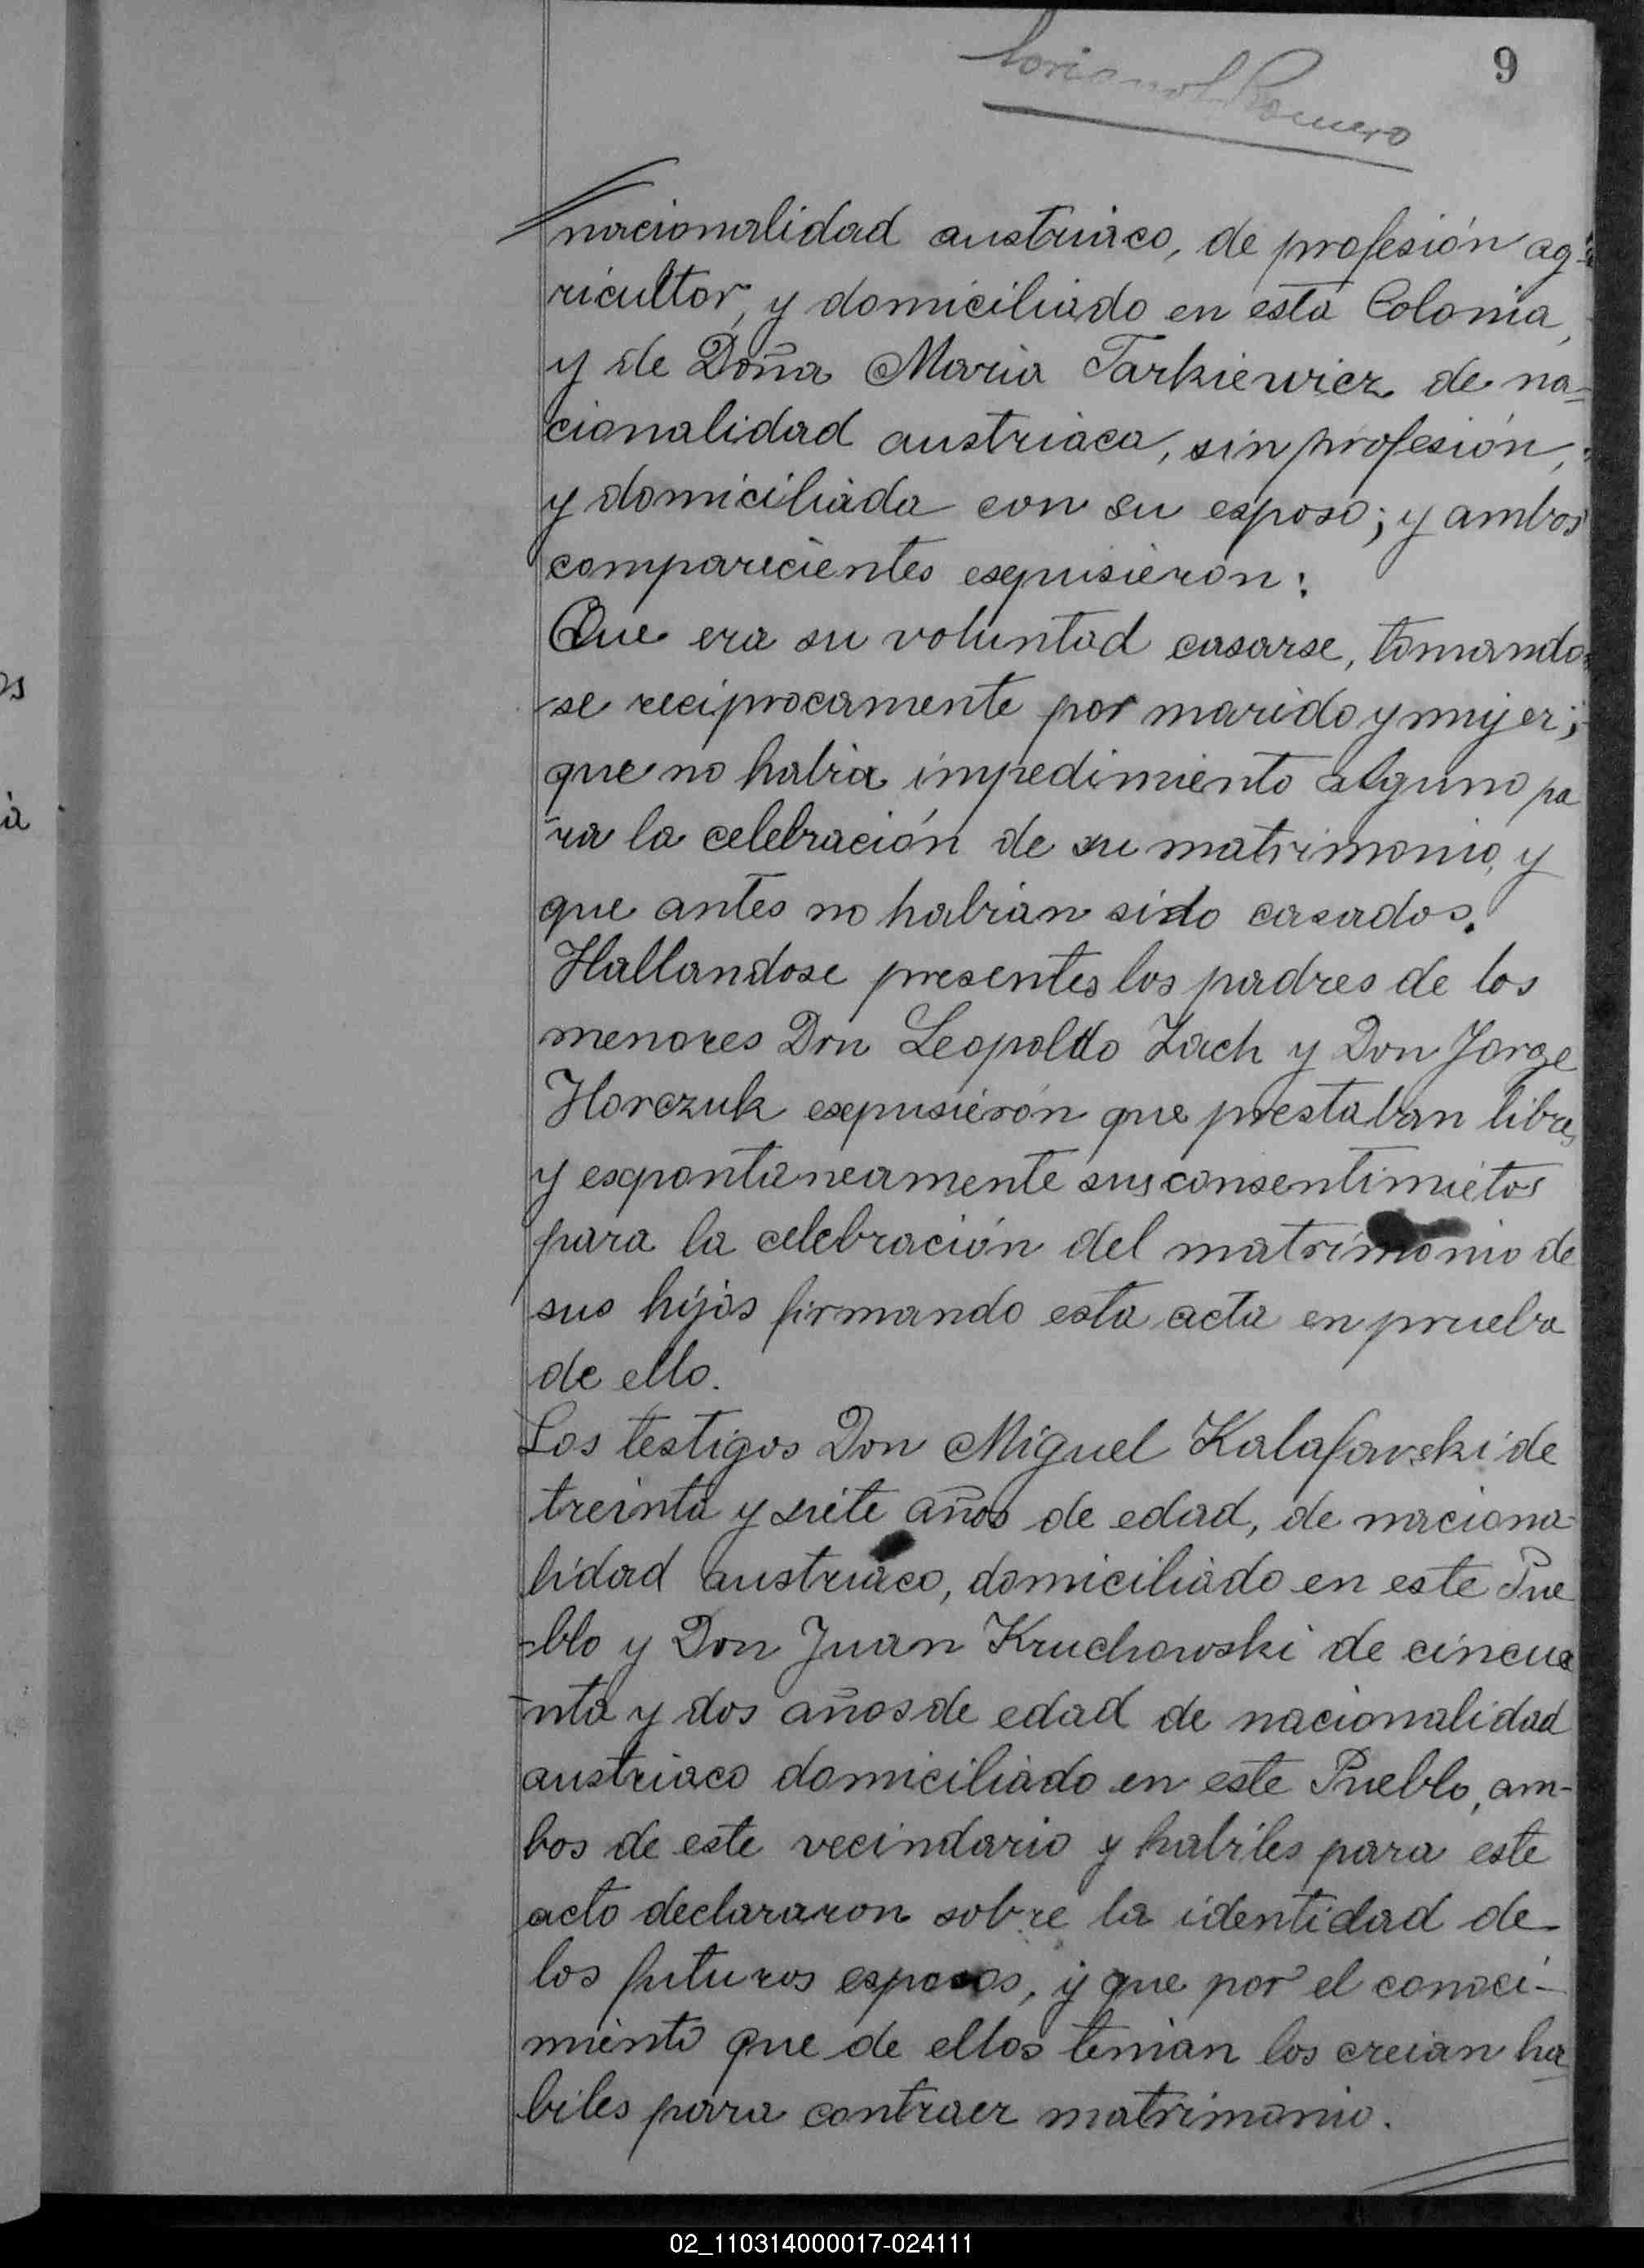 9
Romero
nacionalidad austriaco, de profesión ag-
ricultor, y domiciliado en esta Colonia,
y de Doña Maria Tarkiewicz de na-
cionalidad austriaca, sin profesión,
y domiciliada con su esposo; y ambos
comparecientes esepusieron:
Que era su voluntad casarse, tomando
-se reciprocamente por marido y mujer;
que no habia impedimiento alguno pa
ra la celebración de su matrimonio, y
que antes no habian sido casados.
Hallandose presentes los padres de los
menores Don Leopoldo Zach y Don Jorge
Horczuk esepusierón que prestaban libre
y espontaneamente sus consentimietos
para la celebración del matrimonio de
sus hijos firmando esta acta en prueba
de ello.
Los testigos Don Miguel Kalafarski de
treinta y siete años de edad, de naciona-
lidad austriaco, domiciliado en este Pue
-blo y Don Juan Kruchowski de cincue
-nta y dos años de edad de nacionalidad
austriaco domiciliado en este Pueblo, am-
bos de este vecindario y habiles para este
acto declararon sobre la identidad de
los futuros esposos, y que por el conoci-
miento que de ellos tenian los creian ha
biles para contraer matrimonio.
os
a
02_110314000017-024111